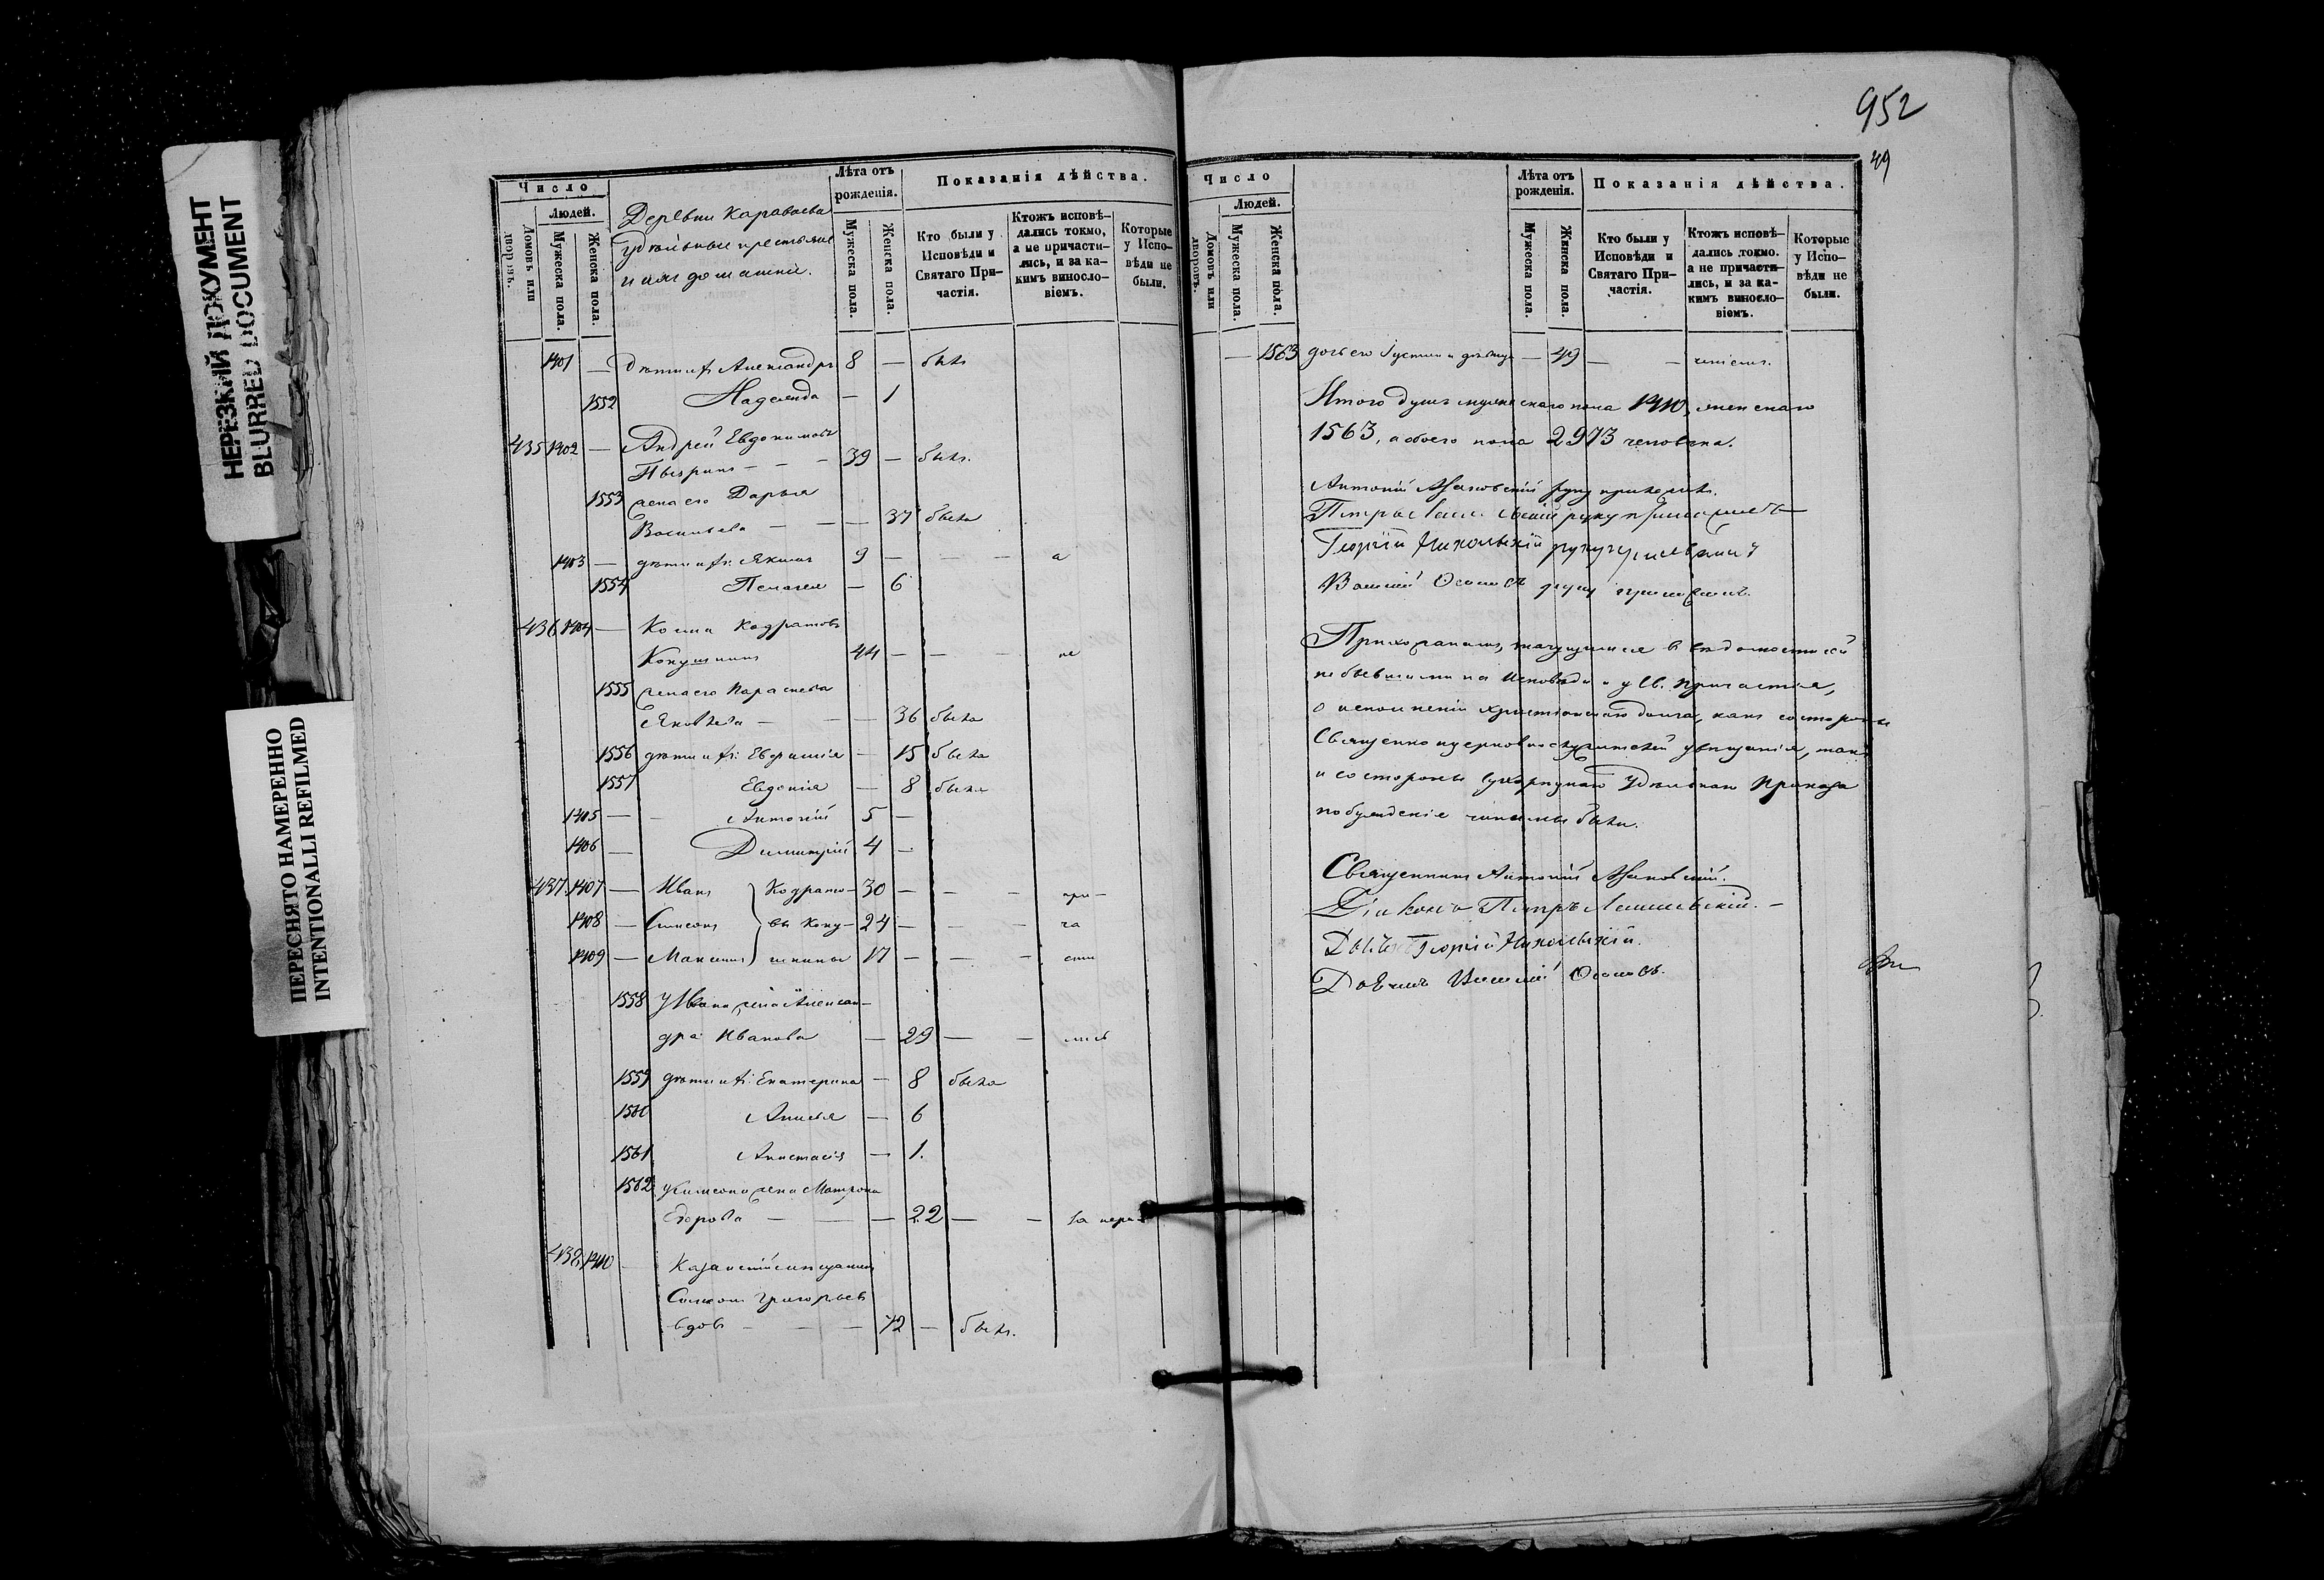 952
49
НЕРЕЗКИЙ ДОКУМЕНТ
BLURRED DOCUMENT
ПЕРЕСНЯТО НАМЕРЕННО
INTENTIONALLI REFILMED
Число
Людей.
Домовъ или дворовъ.
Мужеска пола.
Женска пола.
Деревни Караваева
удѣльные крестьяне
и ихъ домашніе.
Лѣта отъ рожденія.
Мужеска пола.
Женска пола.
Показанія дѣйства.
Кто были у Исповѣди и Святаго Причастія.
Ктожъ исповѣдались токмо, а не причастились, и за какимъ винословіемъ.
Которые у Исповѣди не были.
1401 — дѣти их: Александръ 8 — былъ
1552 Надежда — 1
435 1402 — Андрей Евдокимовъ
— — — 39 — былъ.
1553 жена его Дарья
Васильева — — — 37 была
1403 — дѣти их: Яковъ 9 — — — а
1554 Пелагея — 6
436 1404 — Косма Кодратовъ
Кокушкинъ 44 — — — не
1555 жена его Параскева
Яковлева — — — 36 была
1556 дѣти их: Евфимія — 15 была
1557 Евдокія — 8 была
1405 — — Антоній 5 —
1406 — Димитрій 4 —
437 1407 — Иванъ Кодрато- 30 — — — при-
1408 — Симеонъ вы Коку- 24 — — — ча
1409 — Максимъ шкины 17 — — — сти
1558 у Ивана жена Алексан-
дра Иванова — 29 — — лись
1559 дѣти их: Екатерина — 8 была
1560 Анисья — 6
1561 Анастасія — 1.
1562 у Симеона жена Матрона
Егорова — — — 22 — — за нера-
438 1410 — Казанскій мѣщанинъ
Симеонъ Григорьевъ
вдовъ — — — 72 — былъ.
Число
Людей.
Домовъ или дворовъ.
Мужеска пола.
Женска пола.
Лѣта отъ рожденія.
Мужеска пола.
Женска пола.
Показанія дѣйства.
Кто были у Исповѣди и Святаго Причастія.
Ктожъ исповѣдались токмо. а не причастились, и за какимъ винословіемъ.
Которые у Исповѣди не были.
— 1563 дочь его Іустинія дѣвица — 49 — — чніемъ.
Итого душъ мужескаго пола 1410, женскаго
1563, а обоего пола 2973 человека.
Антоній руку приложилъ.
Петръ руку приложилъ
Георгій Никольскій руку приложилъ
Василій Осиповъ руку приложилъ.
Прихожанамъ, значущимся в вѣдомости сей
не бывшими на исповѣди и у Св. причастія,
о исполненіи христіанскаго долга, какъ со стороны
Священно церковно служителей увѣщанія, такъ
и со стороны Удѣльнаго Приказа
побужденіе чинимы были.
Священникъ Антоній
Діаконъ Петръ
Дьячекъ Георгій Никольскій.
Василій Осиповъ.